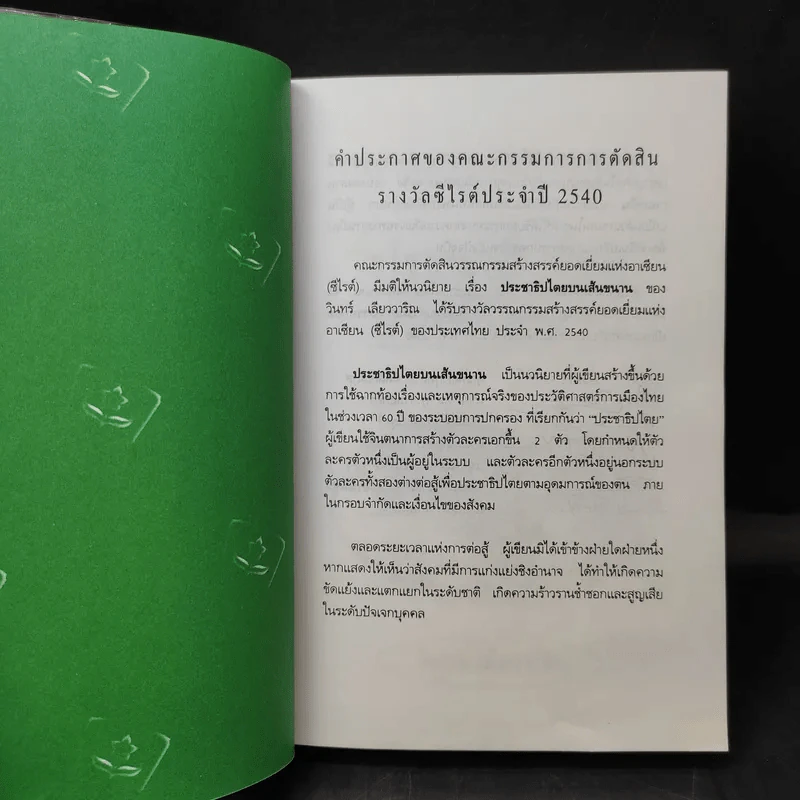 คำประกาศของคณะกรรมการการตัดสิน
รางวัลซีไรต์ประจำปี 2540
คณะกรรมการตัดสินวรรณกรรมสร้างสรรค์ยอดเยี่ยมแห่งอาเซียน
(ซีไรต์) มีมติให้นวนิยาย เรื่อง ประชาธิปไตยบนเส้นขนาน ของ
วินทร์ เลียววาริณ ได้รับรางวัลวรรณกรรมสร้างสรรค์ยอดเยี่ยมแห่ง
อาเซียน (ซีไรต์) ของประเทศไทย ประจำ พ.ศ. 2540
ประชาธิปไตยบนเส้นขนาน เป็นนวนิยายที่ผู้เขียนสร้างขึ้นด้วย
การใช้ฉากท้องเรื่องและเหตุการณ์จริงของประวัติศาสตร์การเมืองไทย
ในช่วงเวลา 60 ปี ของระบอบการปกครอง ที่เรียกกันว่า “ประชาธิปไตย”
ผู้เขียนใช้จินตนาการสร้างตัวละครเอกขึ้น 2 ตัว โดยกำหนดให้ตัว
ละครตัวหนึ่งเป็นผู้อยู่ในระบบ และตัวละครอีกตัวหนึ่งอยู่นอกระบบ
ตัวละครทั้งสองต่างต่อสู้เพื่อประชาธิปไตยตามอุดมการณ์ของตน ภาย
ในกรอบจำกัดและเงื่อนไขของสังคม
ตลอดระยะเวลาแห่งการต่อสู้ ผู้เขียนมิได้เข้าข้างฝ่ายใดฝ่ายหนึ่ง
หากแสดงให้เห็นว่าสังคมที่มีการแก่งแย่งชิงอำนาจ ได้ทำให้เกิดความ
ขัดแย้งและแตกแยกในระดับชาติ เกิดความร้าวรานช้ำชอกและสูญเสีย
ในระดับปัจเจกบุคคล